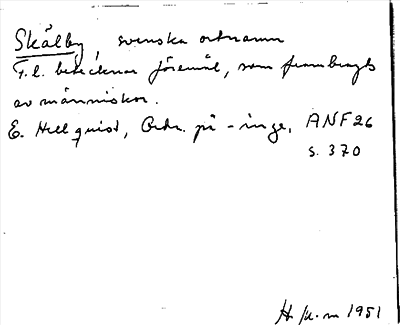 Skälby, svenska ortnamn
F.l. betecknar föremål, som frambragts
av människor.
E. Hellquist, Ortn. på -inge, ANF 26
s. 370
1951